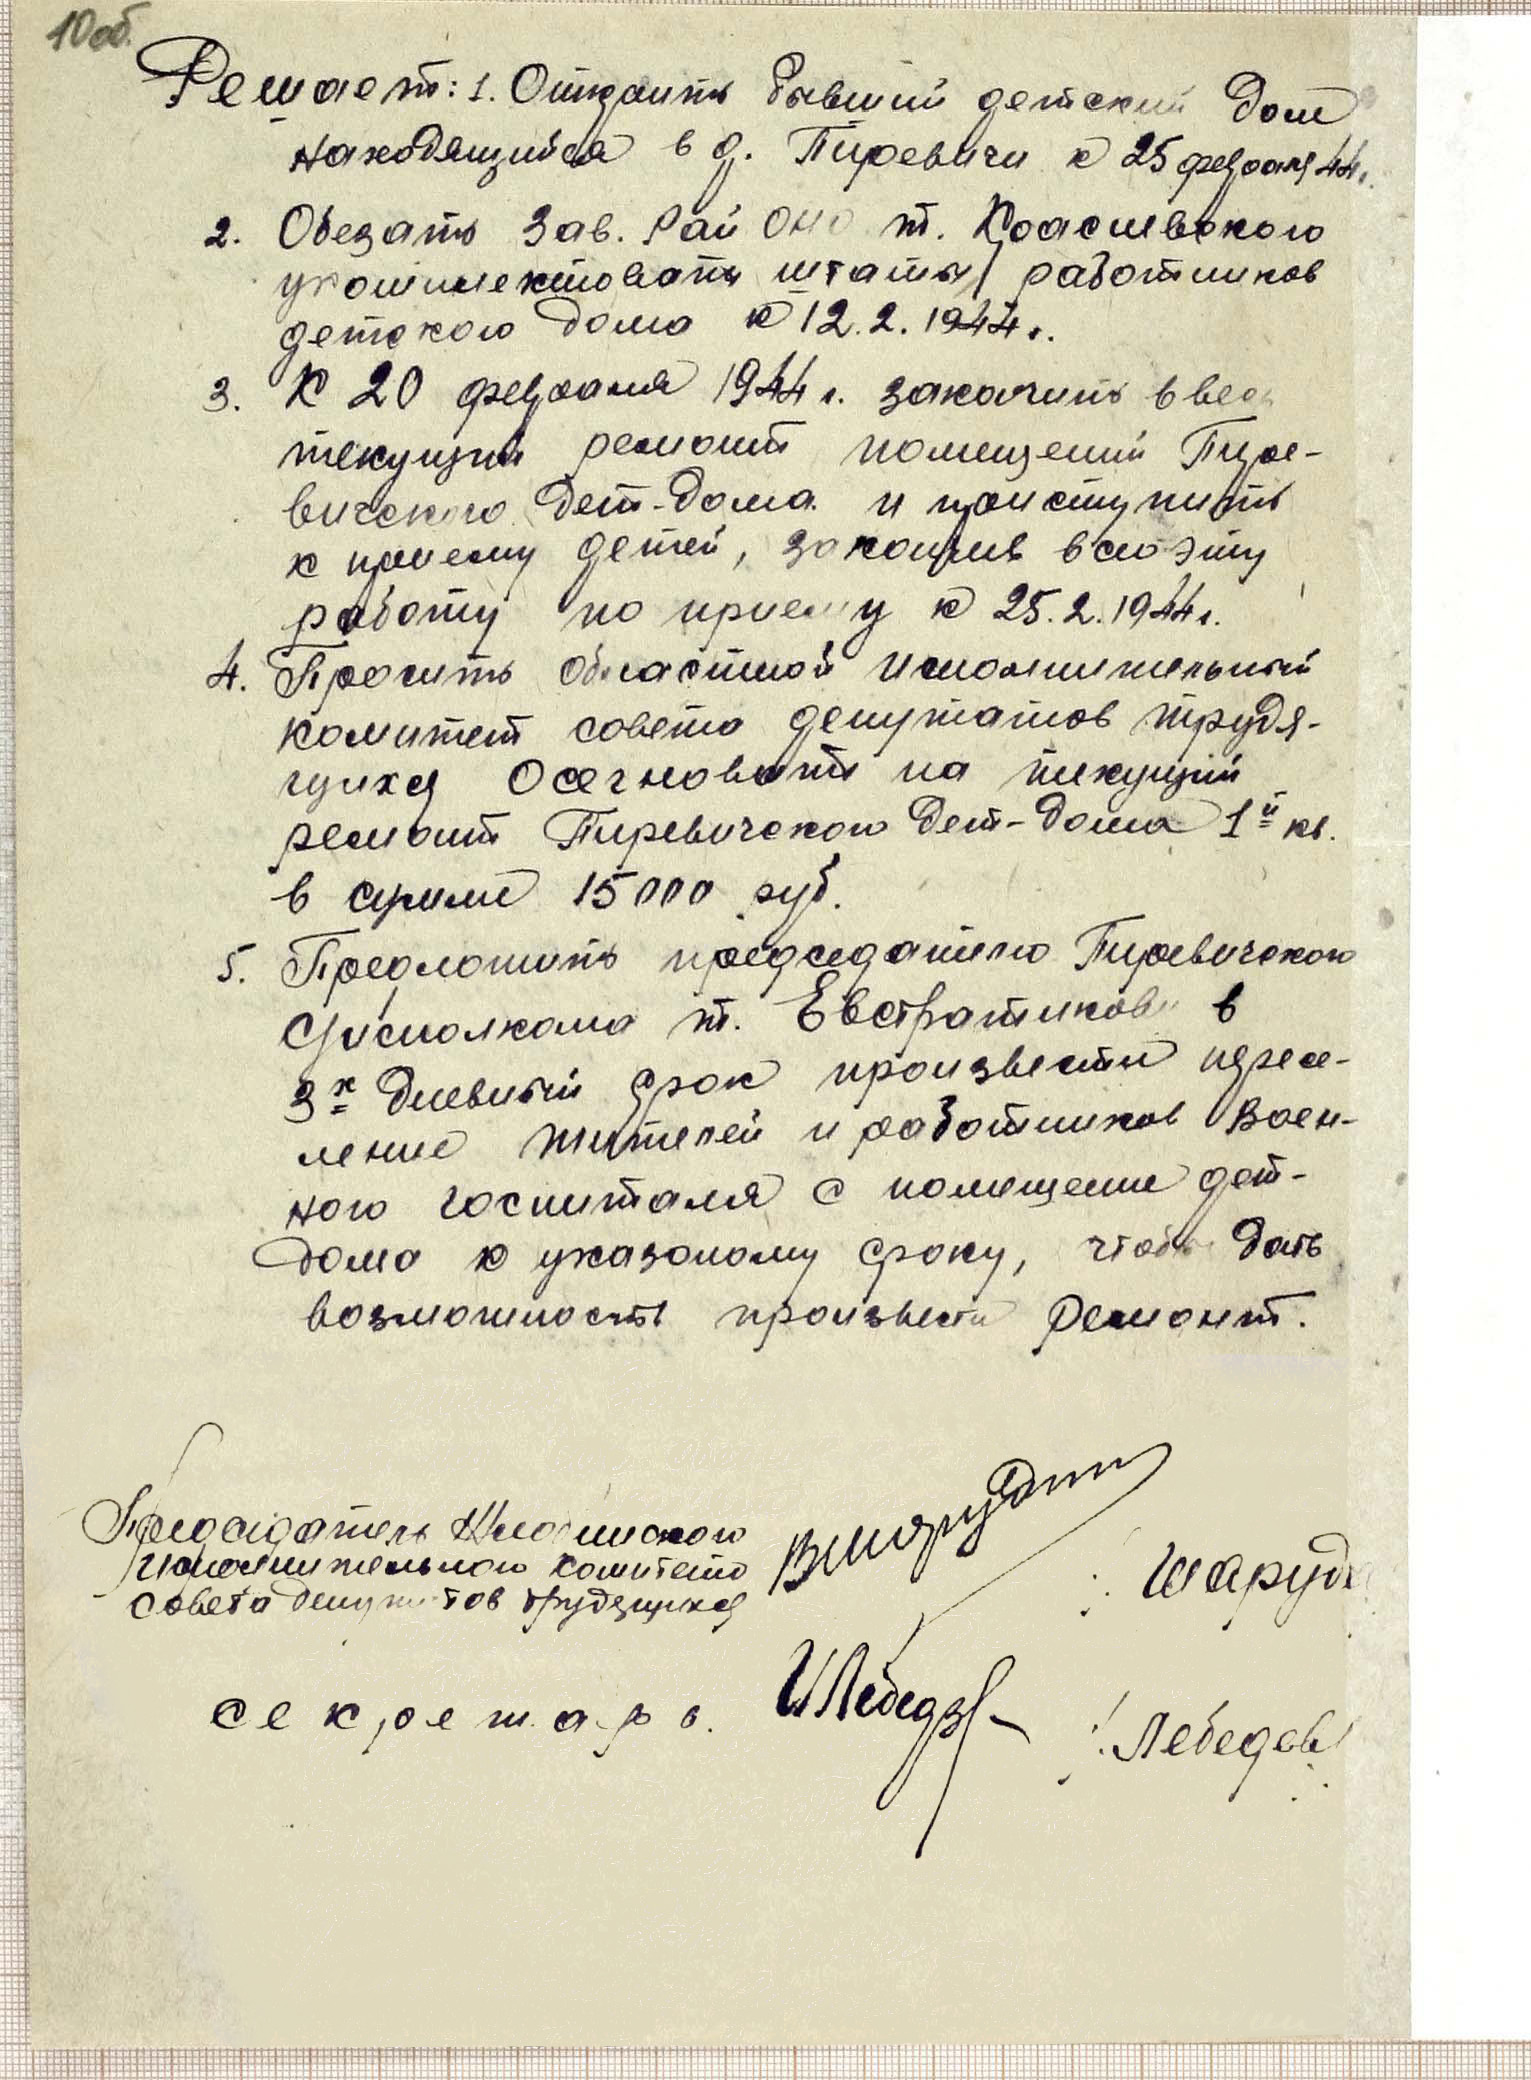 10об.
Решает: 1. Открыть бывший детский дом
находящийся в д. Пиревичи к 25 февраля 44г.
2. Обезать Зав. РайОНО т. Красневского
укомплектовать штаты работников
детского дома к 12.2.1944г.
3. К 20 февраля 1944г. закончить весь
текущий ремонт помещений Пире-
вичского Дет-дома и приступить
к приему детей, закончив всю эту
работу по приему к 25.2.1944г.
4. Просить областной исполнительный
комитет совета депутатов трудя-
щихся Осегновать на текущий
ремонт Пиревичского Дет-дома 1й кв.
в сумме 15000 руб.
5. Предложить председателю Пиревичского
с/исполкома т. Евстратикову в
3х дневный срок произвести пересе-
ление жителей и работников Воен-
ного госпиталя с помещение дет-
дома к указоному сроку, чтобы дать
возможность произвести ремонт.
Председатель Жлобинского
исполнительного комитета
совета депутатов трудящихся
Шаруд
секретарь. ИЛебедев
/Лебедев/